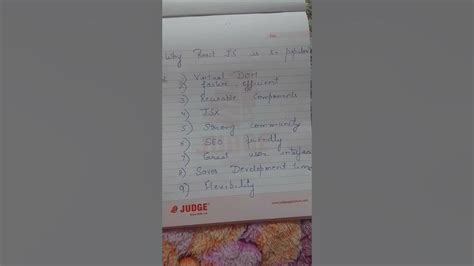 Why React JS is so popular
1) Virtual DOM
2) Faster, efficient
3) Reuseable Components
4) JSX
5) Strong community
6) SEO friendly
7) Great user interface
8) Saves Development time
9) Flexibility
JUDGE